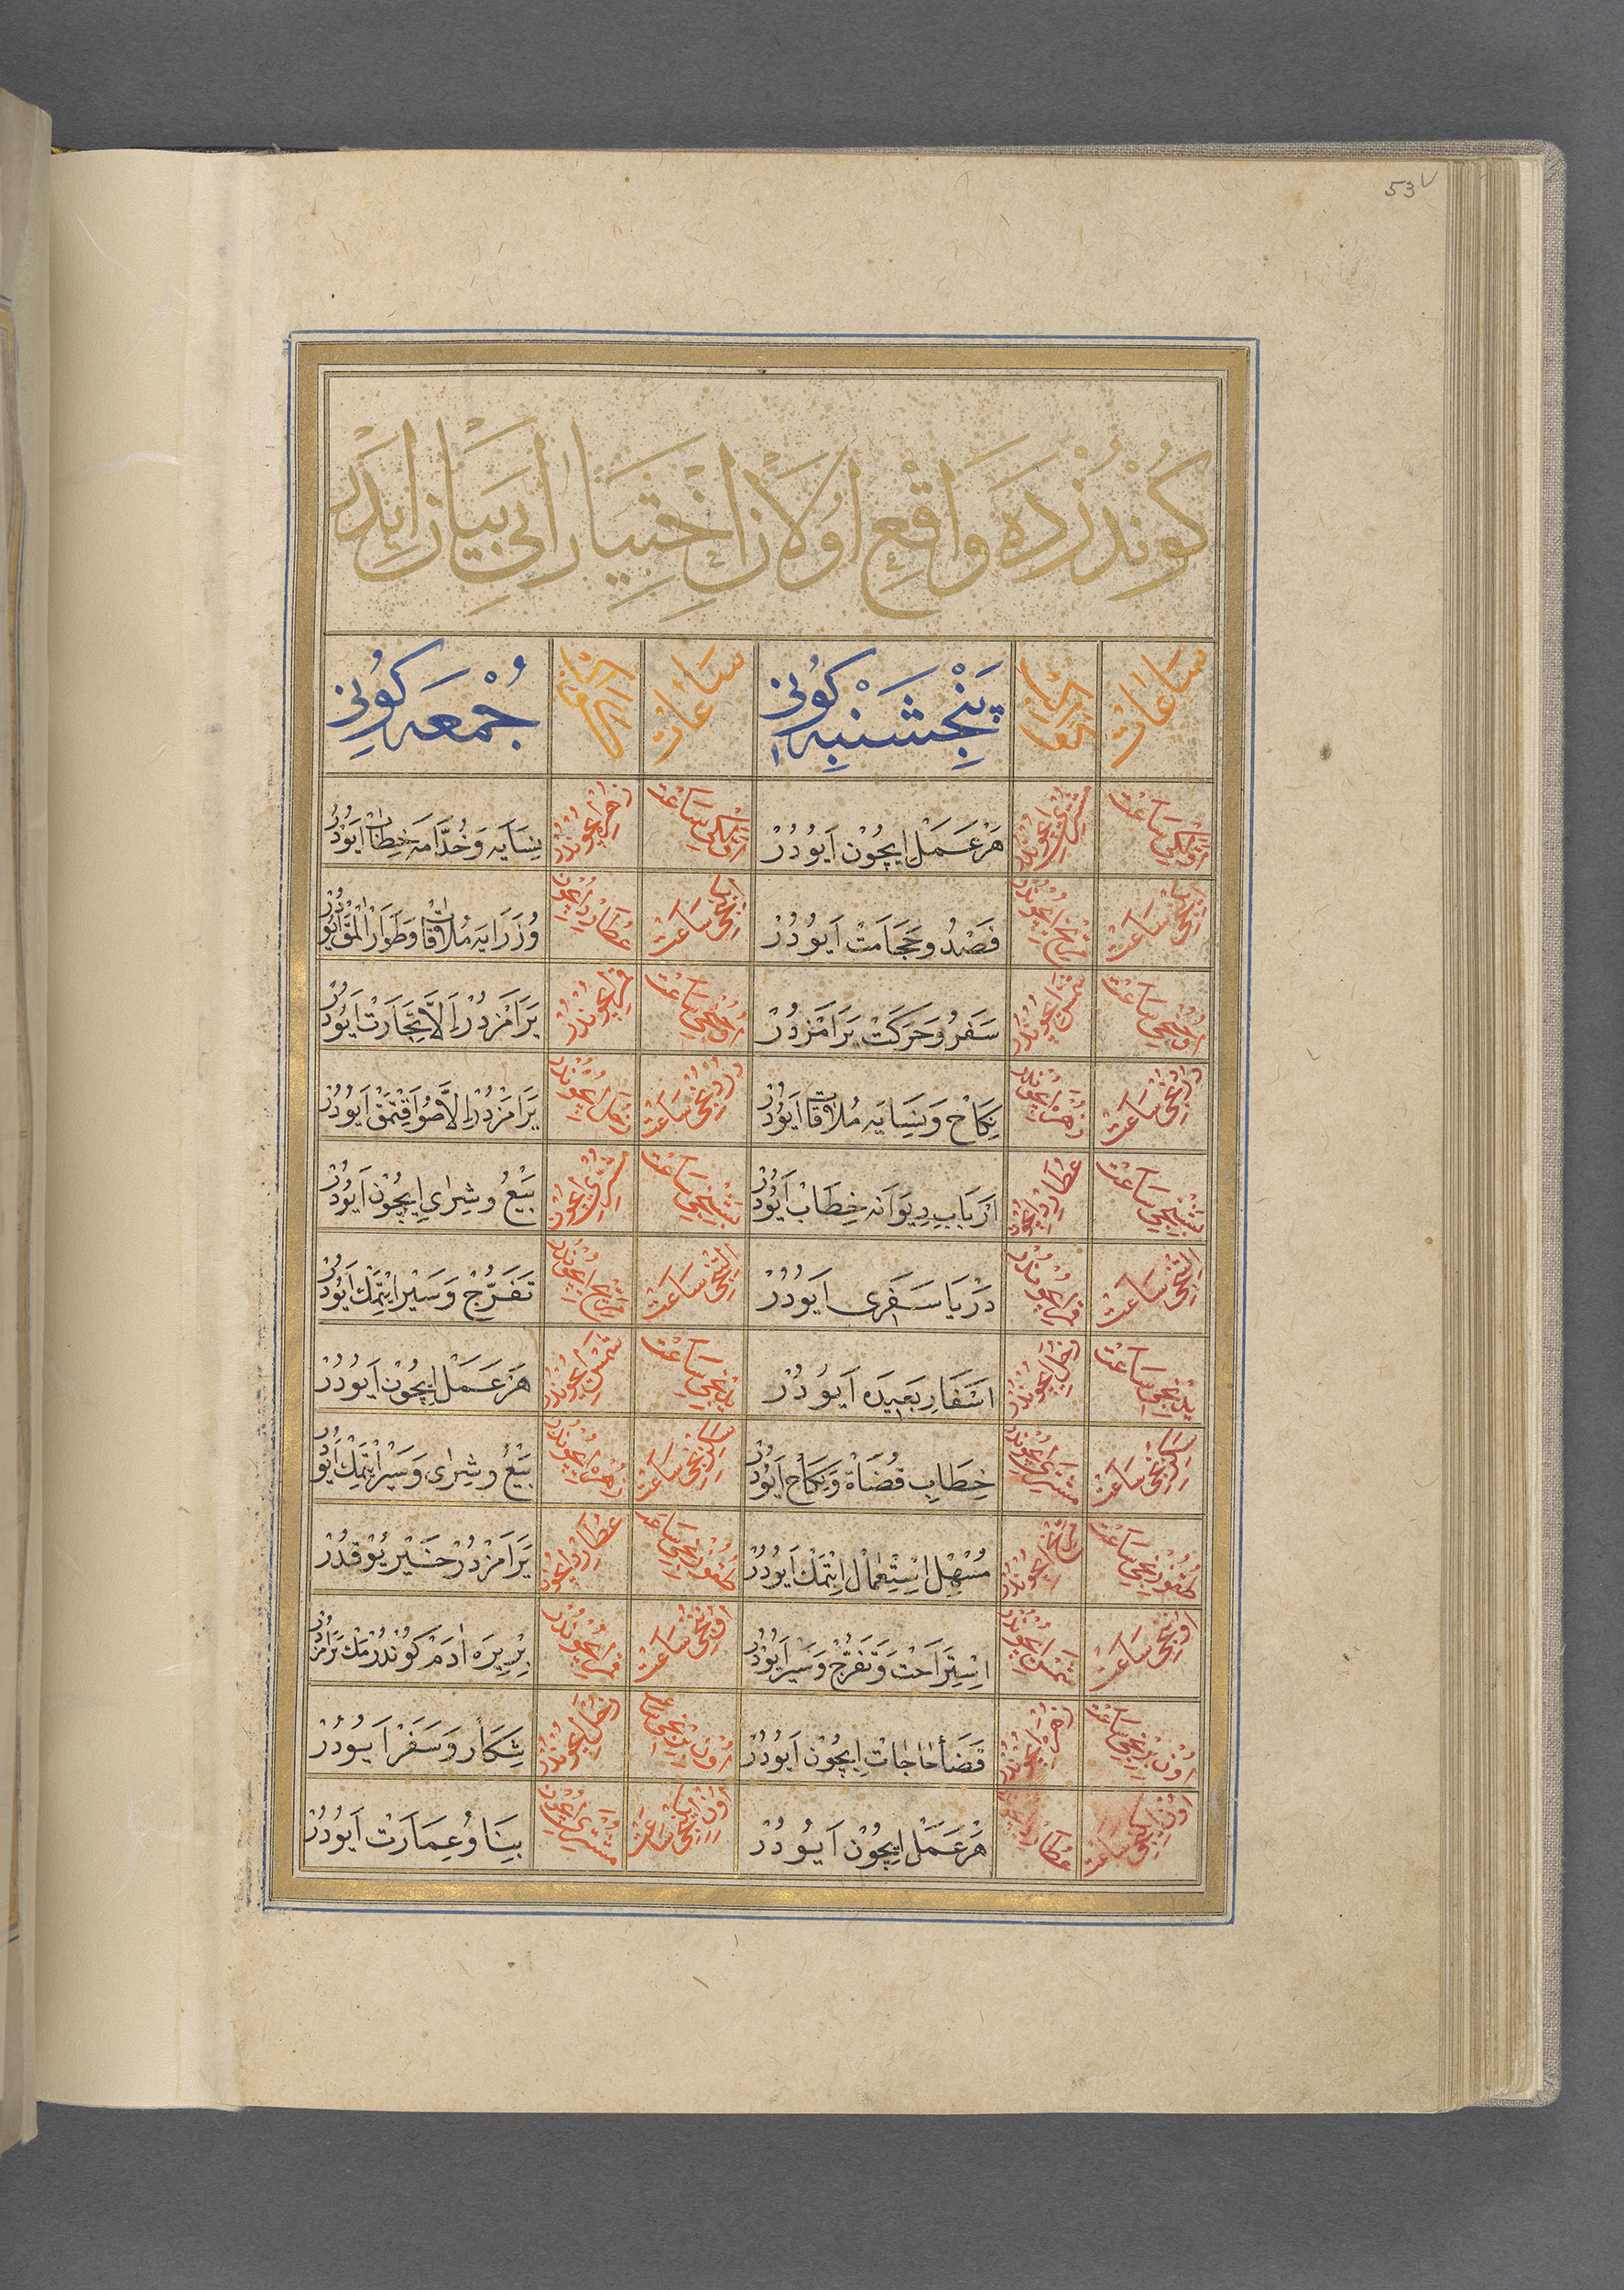 53v
كُونْدُزْدَه وَاقِعْ اُولَانْ اِخْتِيَارَاتِى بَيَانْ ايدَرْ
سَاعَاتْ
الكواكب
پَنْجِشَنْبِه كُونِى
سَاعَاتْ
الكواكب
جُمْعَه كُونِى
اَوَّلْكِى سَاعَتْ
مُشْتَرِى ايچُونْدُرْ
هَرْ عَمَلْ ايچُونْ اَيُودُرْ
اَوَّلْكِى سَاعَتْ
زُهْرَه ايچُونْدُرْ
نِسَايَه وَخُدَّامَه خِطَابْ اَيُودُرْ
ايكِنْجِى سَاعَتْ
مِرِّيخْ ايچُونْدُرْ
فَصْدُ وحَجَامَتْ اَيُودُرْ
ايكِنْجِى سَاعَتْ
عُطَارِدْ ايچُونْ
وُزَرَايَه مُلَاقَاتْ وَطَوَارْ اَلْمَقْ اَيُودُرْ
اُوچُنْجِى سَاعَتْ
شَمْسْ ايچُونْدُرْ
سَفَرُ وَحَرَكَتْ يَرَامَزْدُرْ
اُوچُنْجِى سَاعَتْ
قَمَرْ ايچُونْدُرْ
يَرَامَزْدُرْ اِلَّا تِجَارَتْ اَيُودُرْ
دُرْدُنْجِى سَاعَتْ
زُهْرَه ايچُونْدُرْ
نِكَاحْ وَنِسَايَه مُلَاقَاتْ اَيُودُرْ
دُرْدُنْجِى سَاعَتْ
زُحَلْ ايچُونْدُرْ
يَرَامَزْدُرْ اِلَّا صُو اَقِتْمَقْ اَيُودُرْ
بَشِنْجِى سَاعَتْ
عُطَارِدْ ايچُونْ
اَرْبَابِ دِيوَانَه خِطَابْ اَيُودُرْ
بَشِنْجِى سَاعَتْ
مُشْتَرِى ايچُونْ
بَيْعُ وشِرَاىِ ايچُونْ اَيُودُرْ
اَلْتِنْجِى سَاعَتْ
قَمَرْ ايچُونْدُرْ
دَرْيَا سَفَرِى اَيُودُرْ
اَلْتِنْجِى سَاعَتْ
مِرِّيخْ ايچُونْدُرْ
تَفَرُّجْ وَسَيْر ايتْمَكْ اَيُودُرْ
يَدِنْجِى سَاعَتْ
زُحَلْ ايچُونْدُرْ
اَسْفَارِ بَعِيدَه اَيُودُرْ
يَدِنْجِى سَاعَتْ
شَمْسْ ايچُونْدُرْ
هَرْ عَمَلْ ايچُونْ اَيُودُرْ
سَكِزِنْجِى سَاعَتْ
مُشْتَرِى ايچُونْدُرْ
خِطَابِ قُضَاةْ وَنِكَاحْ اَيُودُرْ
سَكِزِنْجِى سَاعَتْ
زُهْرَه ايچُونْدُرْ
بَيْعُ وشِرَاى وَسَيْر ايتْمَكْ اَيُودُرْ
طُقُوزِنْجِى سَاعَتْ
مِرِّيخْ ايچُونْدُرْ
مُسْهِلْ اِسْتِعْمَالْ ايتْمَكْ اَيُودُرْ
طُقُوزِنْجِى سَاعَتْ
عُطَارِدْ ايچُونْ
يَرَامَزْدُرْ خَيْر يُوقْدُرْ
اُونِنْجِى سَاعَتْ
شَمْسْ ايچُونْدُرْ
اِسْتِرَاحَتْ وَتَفَرُّجْ وَسَيْر اَيُودُرْ
اُونِنْجِى سَاعَتْ
قَمَرْ ايچُونْدُرْ
بِرْ يِرَه اٰدَمْ كُونْدُرْمَكْ يَرَامَزْدُرْ
اُونْ بِرِنْجِى سَاعَتْ
زُهْرَه ايچُونْدُرْ
قَضَاءِ حَاجَاتْ ايچُونْ اَيُودُرْ
اُونْ بِرِنْجِى سَاعَتْ
زُحَلْ ايچُونْدُرْ
شِكَارْ وَسَفَرْ اَيُودُرْ
اُونْ ايكِنْجِى سَاعَتْ
عُطَارِدْ
هَرْ عَمَلْ ايچُونْ اَيُودُرْ
اُونْ ايكِنْجِى سَاعَتْ
مُشْتَرِى ايچُونْ
بِنَا وُ عِمَارَتْ اَيُودُرْ